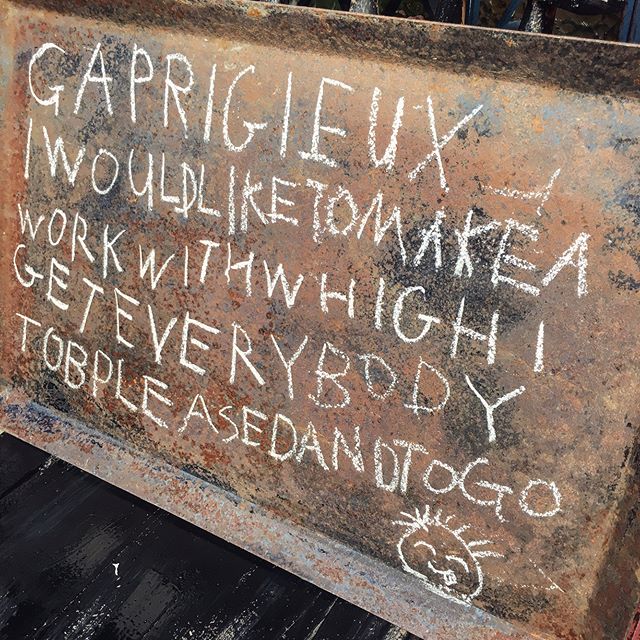 GAPRIGIEUX
I WOULDLIKETOMAKEA
WORK WITHWHIGH I
GETEVERYBODY
TOBPLEASEDANDTOGO